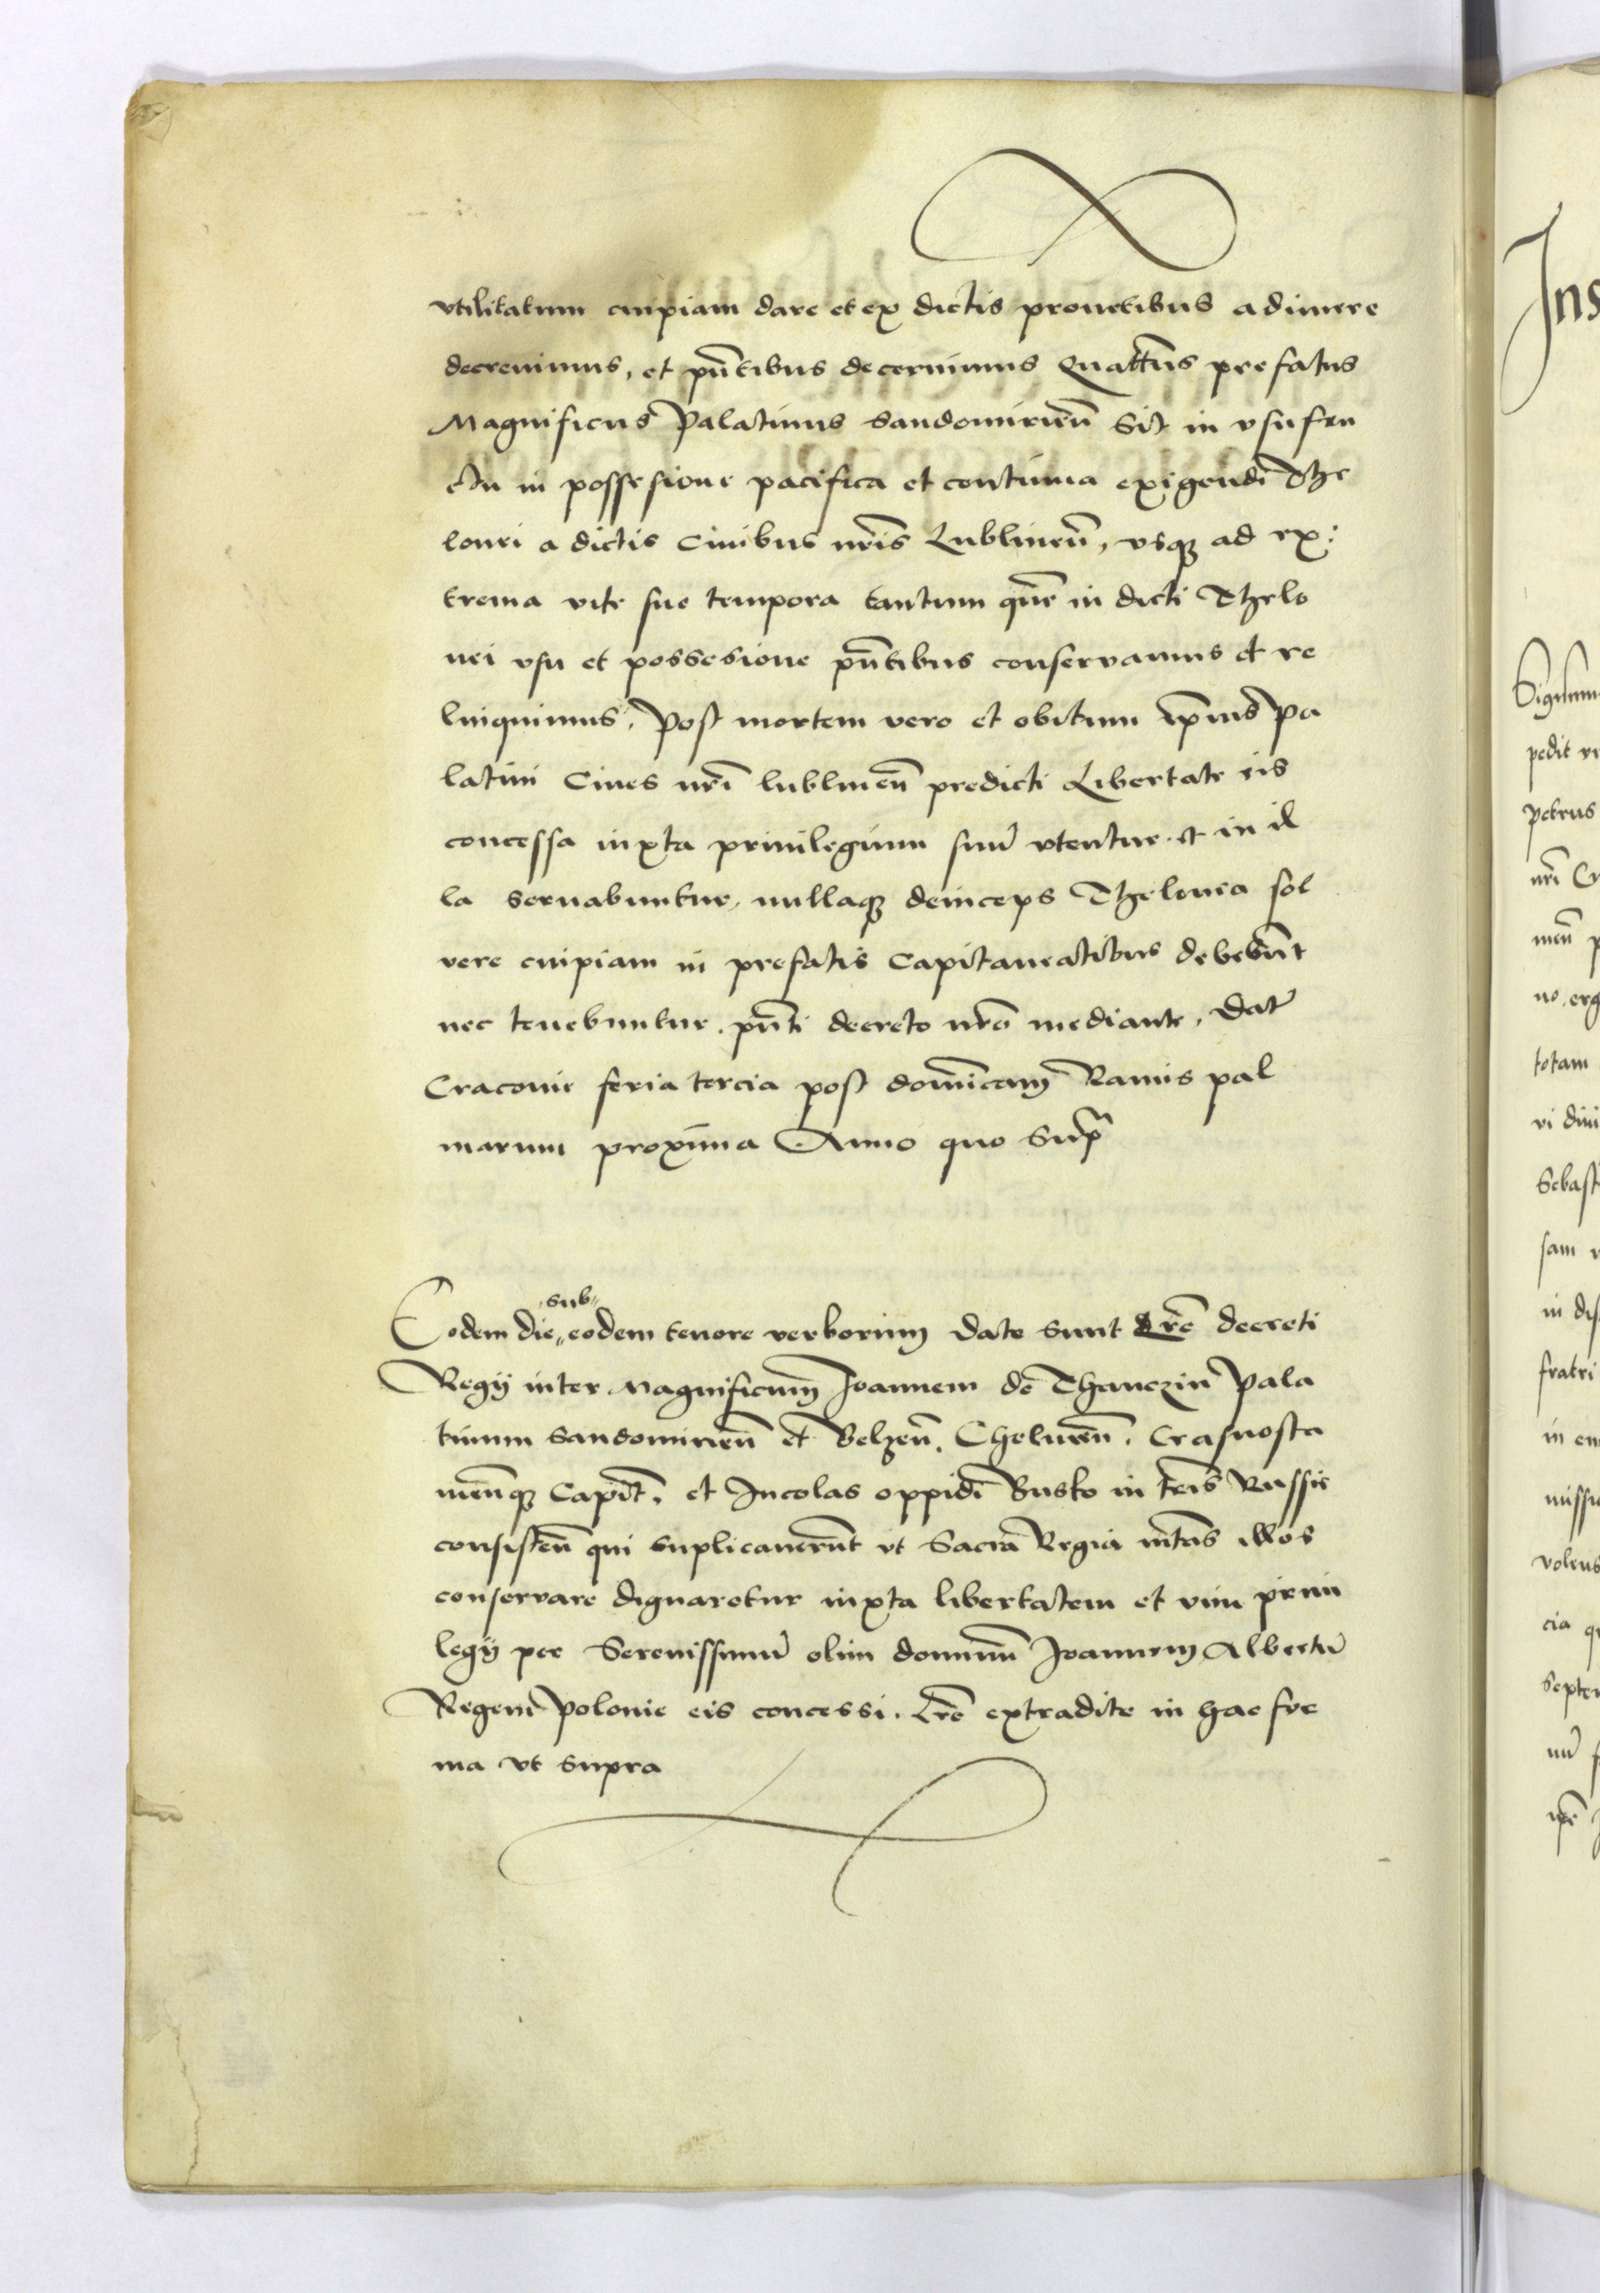 vtilitatum cuipiam dare et ex dictis prouetibus adimere
decreuimus, et pn̄tibus decernimus Quatt̄us prefatus
Magnificus Palatinus Sandomirien̄ Sit in vsufru
ctu in possesione pacifica et continua exigendi The
lonei a dictis Ciuibus nr̄is Lublinen̄, vsqꝫ ad ex:
trema vite sue tempora tantum que̅ in dicti Thelo
nei vsu et possesione pn̄tibus conseruamus et re
linquimus. Post mortem vero et obitum ip̄ius Pa
latini Ciues nr̄i lublinen̄ predicti Libertate eis
concessa iuxta priuilegium suū vtentur. et in il
la seruabuntur, nullaqꝫ deinceps Thelonea sol
vere cuipiam in prefatis Capitaneatibus debebūt
nec tenebuntur. pn̄ti decreto nr̄o mediante. Dat̄
Cracouie feria tercia post domīcam Ramis pal
marum proxima Anno quo Supᷓ
Eodem die sub eodem tenore verborum date sunt Lr̄e decreti
Regij inter Magnificum Joannem de Thanczin Pala
tinum Sandomirien̄ et Belzen̄. Chelmen̄. Crasnosta
uien̄qꝫ Capit̄. et Incolas oppidi Busko in terīs Russie
consisten̄ qui suplicauerūt vt Sacra Regia m̄tas illos
conseruare dignaretur iuxta libertatem et vim priui
legij per Serenissimū olim dominū Joannem Albertū
Regem Polonie eis concessi. Lr̄e extradite in hac for
ma vt supra
Ins
pedit
petrus
nr̄i
men̄
totam
Sebast
sam
fratri
volens
cia
Septe